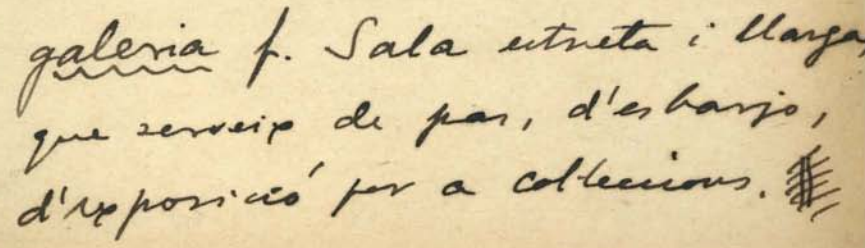 galeria f. Sala estreta i llarga,
que serveix de pas, d'esbarjo,
d'exposició per a colleccions.